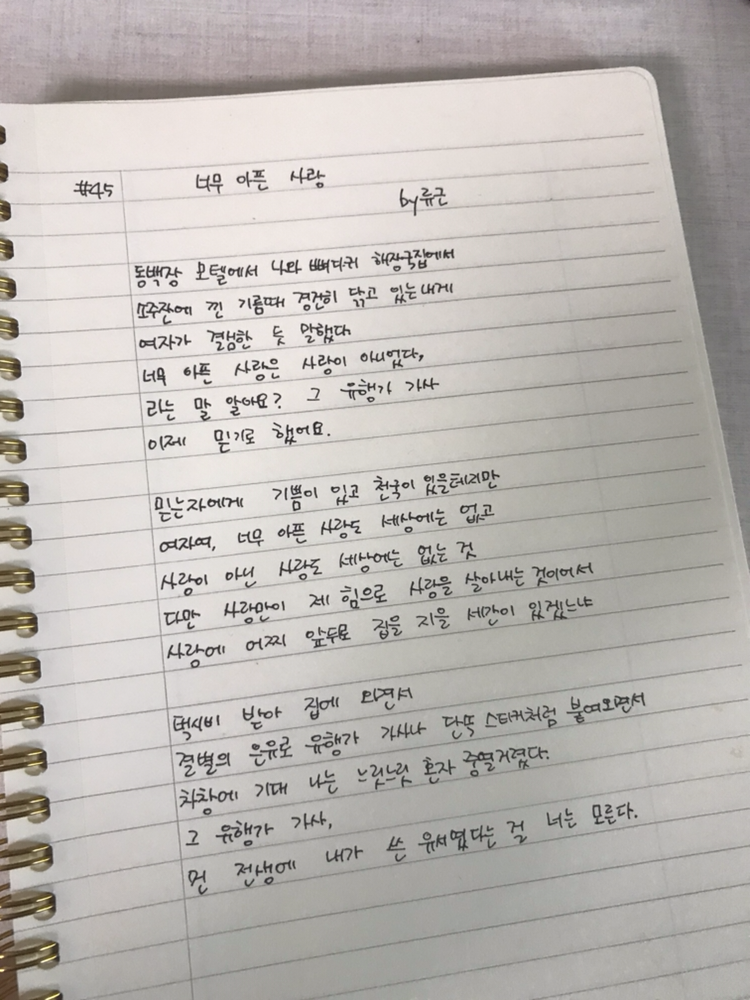 #45 너무 아픈 사랑
by 류근
동백장 모텔에서 나와 뼈다귀 해장국집에서
소주잔에 낀 기름때 경건히 닦고 있는 내게
여자가 결심한 듯 말했다
너무 아픈 사랑은 사랑이 아니었다,
라는 말 알아요? 그 유행가 가사
이제 믿기로 했어요.
믿는자에게 기쁨이 있고 천국이 있을테지만
여자여, 너무 아픈 사랑도 세상에는 없고
사랑이 아닌 사랑도 세상에는 없는 것
다만 사랑만이 제 힘으로 사랑을 살아내는 것이어서
사랑에 어찌 앞뒤로 집을 지을 세간이 있겠느냐
택시비 받아 집에 오면서
결별의 은유로 유행가 가사나 단뜩 스티커처럼 붙여오면서
차창에 기대 나는 느릿느릿 혼자 중얼거렸다.
그 유행가 가사,
먼 전생에 내가 쓴 유서였다는 걸 너는 모른다.